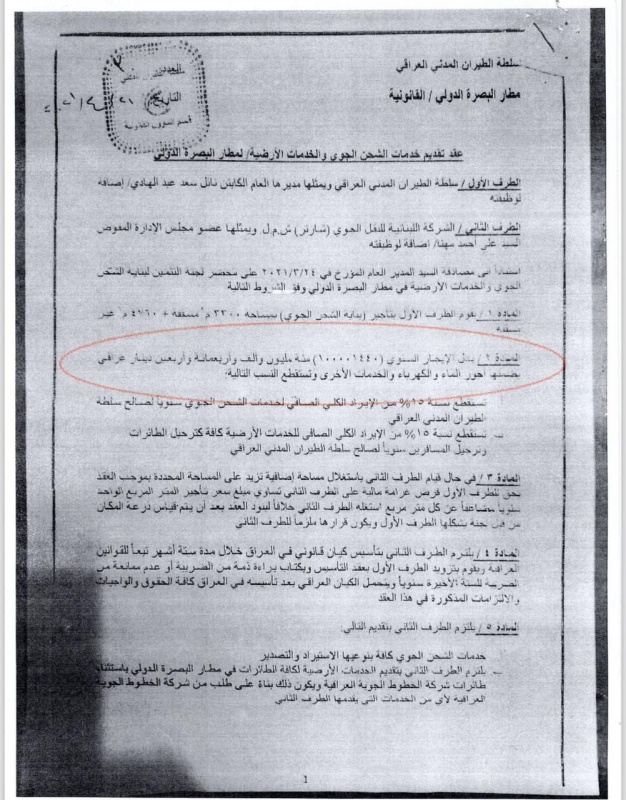 سلطة الطيران المدني العراقي
مطار البصرة الدولي / القانونية
العدد
التاريخ
عقد تقديم خدمات الشحن الجوي والخدمات الأرضية/ لمطار البصرة الدولي
الطرف الأول / سلطة الطيران المدني العراقي ويمثلها مديرها العام الكابتن نائل سعد عبد الهادي/ إضافة
لوظيفته
الطرف الثاني / الشركة اللبنانية للنقل الجوي (شارتر) ش.م.ل ويمثلها عضو مجلس الإدارة المفوض
السيد علي أحمد مهنا/ إضافة لوظيفته
استنادا الى مصادقة السيد المدير العام المؤرخ في ٢٠٢١/٣/٢٤ على محضر لجنة التثمين لبناية الشحن
الجوي والخدمات الارضية في مطار البصرة الدولي وفق الشروط التالية
المادة ١ / يقوم الطرف الأول بتأجير (بناية الشحن الجوي) بمساحة ٣٣٠٠ م٢ مسقفة + ٤٩٦٠ م٢ غير
مسقفة
المادة ٢ / بدل الإيجار السنوي (١٠٠٠٠١٤٤٠) مئة مليون وألف وأربعمائة وأربعين دينار عراقي
بضمنها أجور الماء والكهرباء والخدمات الأخرى وتستقطع النسب التالية:
تستقطع نسبة ١٥% من الإيراد الكلي الصافي لخدمات الشحن الجوي سنوياً لصالح سلطة
الطيران المدني العراقي
تستقطع نسبة ١٥% من الإيراد الكلي الصافي للخدمات الأرضية كافة كترحيل الطائرات
وترحيل المسافرين سنوياً لصالح سلطة الطيران المدني العراقي
المادة ٣ / في حال قيام الطرف الثاني باستغلال مساحة إضافية تزيد على المساحة المحددة بموجب العقد
يحق للطرف الأول فرض غرامة مالية على الطرف الثاني تساوي مبلغ سعر تأجير المتر المربع الواحد
سنوياً مضاعفاً عن كل متر مربع استغله الطرف الثاني خلافاً لبنود العقد بعد أن يتم قياس ذرعة المكان
من قبل لجنة يشكلها الطرف الأول ويكون قرارها ملزماً للطرف الثاني
المادة ٤ / يلتزم الطرف الثاني بتأسيس كيان قانوني في العراق خلال مدة ستة أشهر تبعاً للقوانين
العراقية ويقوم بتزويد الطرف الأول بعقد التأسيس وبكتاب براءة ذمة من الضريبة أو عدم ممانعة من
الضريبة للسنة الأخيرة سنوياً ويتحمل الكيان العراقي بعد تأسيسه في العراق كافة الحقوق والواجبات
والالتزامات المذكورة في هذا العقد
المادة ٥ / يلتزم الطرف الثاني بتقديم التالي:
خدمات الشحن الجوي كافة بنوعيها الاستيراد والتصدير
يلتزم الطرف الثاني بتقديم الخدمات الأرضية لكافة الطائرات في مطار البصرة الدولي باستثناء
طائرات شركة الخطوط الجوية العراقية ويكون ذلك بناءً على طلب من شركة الخطوط الجوية
العراقية لأي من الخدمات التي يقدمها الطرف الثاني
1